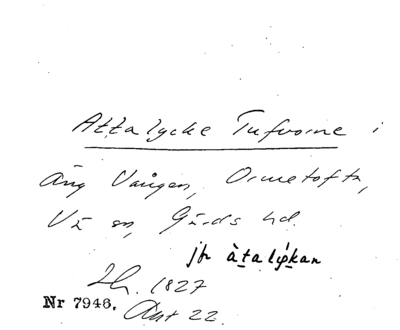 Attalycke Tufvorne i
Äng Vången, Ormetofta,
Vä sn, Gärds hd.
jfr àtalýkan
Lh. 1827
Nr 7946. Akt 22.